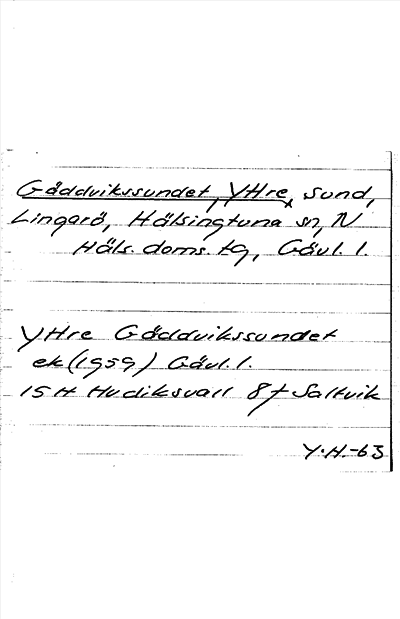 Gäddvikssundet, Yttre, sund,
Lingarö, Hälsingtuna sn, N
Häls. doms. tg, Gävl. l.
Yttre Gäddvikssundet
ek (1959) Gävl. l.
15 H Hudiksvall 8 f Saltvik
Y.H.-63